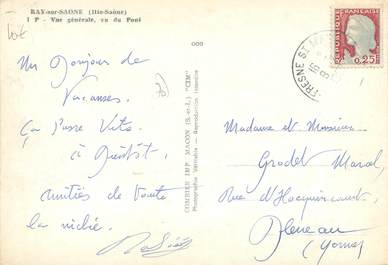 RAY-sur-SAONE (Hte-Saône)
1 P - Vue générale, vu du Pont
Un Bonjour de
Vacances.
Ça passe Vite
à Bientôt
amitiés de toute
la nichée
COMBIER IMP. MACON (S.-et-L.) "CIM"
Photographie Véritable - Reproduction Interdite
FRESNE ST M
REPUBLIQUE FRANÇAISE
0,25F
Madame et Monsieur
Grodet Marcel
Rue d'Hacquincourt
Bleneau
(Yonne)